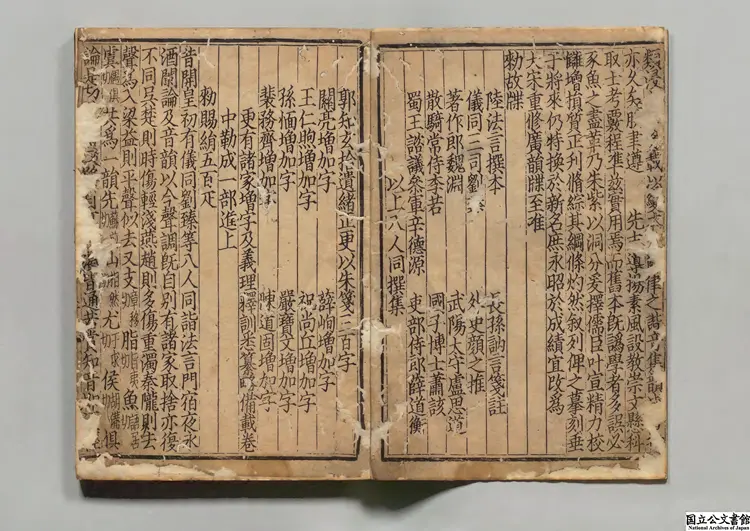 亦久矣朕聿遵 先志導揚素風設教崇文懸科
取士考覈程準茲實用焉而舊本旣譌學者多誤必
豕魚之盡革乃朱紫以洞分爰擇儒臣叶宣精力校
讎增損質正刋脩綜其綱條灼然敘列俾之摹刻垂
于將來仍特換於新名庶永昭於成績宜改爲
大宋重修廣韻牒至准
勑故牒
陸法言撰本 長孫訥言箋註
儀同三司劉臻 外史顏之推
著作郎魏淵 武陽太守盧思道
散騎常侍李若 國子博士蕭該
蜀王諮議參軍辛德源 吏部侍郎薛道衡
以上八人同撰集
郭知玄拾遺緒正更以朱箋三百字
關亮增加字 薛峋增加字
王仁煦增加字 祝尚丘增加字
孫愐增加字 嚴寶文增加字
裴務齊增加字 陳道固增加字
更有諸家增字及義理釋訓悉纂略備載卷
中勒成一部進上
勑賜絹五百疋
昔開皇初有儀同劉臻等八人同詣法言門宿夜永
酒闌論及音韻以今聲調旣自別有諸家取捨亦復
不同吳楚則時傷輕淺燕趙則多傷重濁秦隴則去
聲爲入梁益則平聲似去又支 脂 魚
虞 共爲一韻先 仙 尤 侯 俱
論是切
国立公文書館
National Archives of Japan